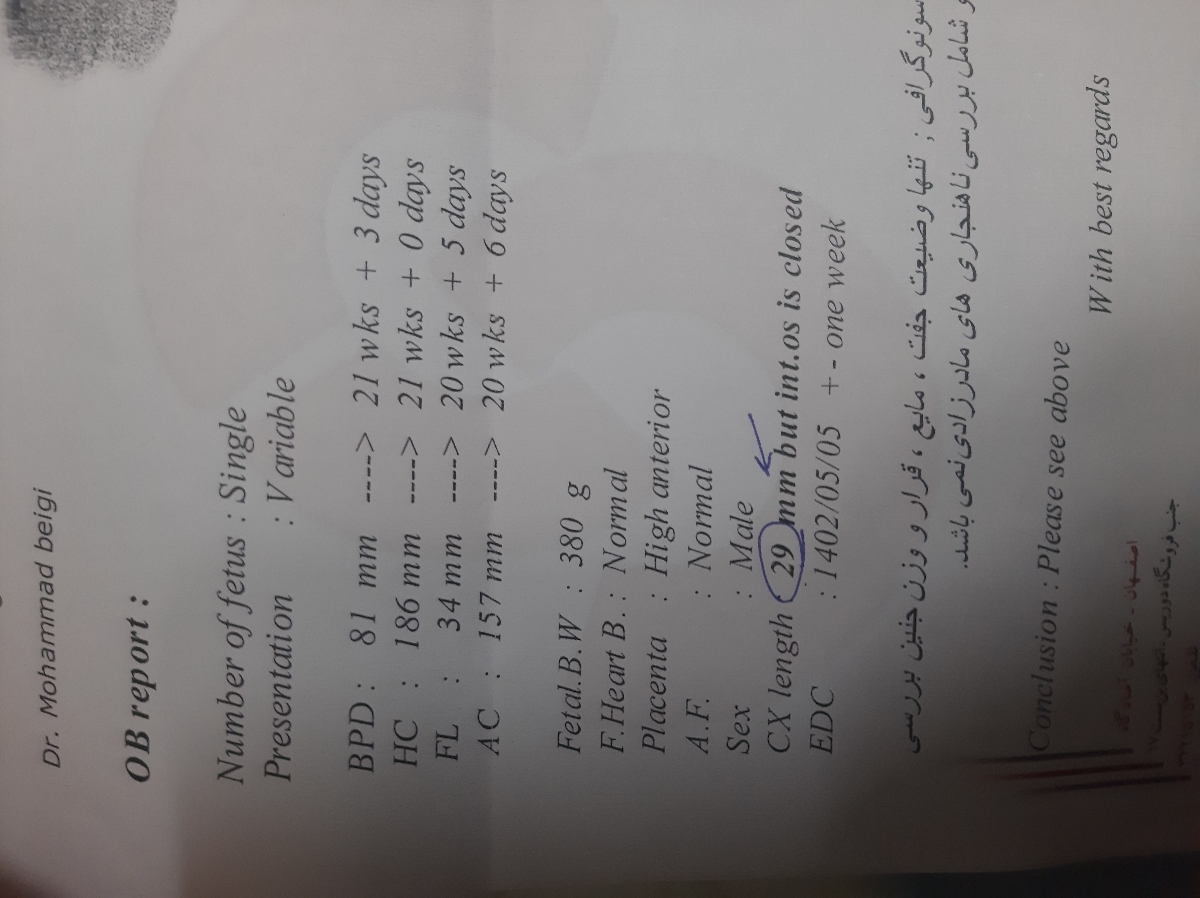 Dr. Mohammad beigi
OB report :
Number of fetus : Single
Presentation : Variable
BPD : 81 mm ----> 21 wks + 3 days
HC : 186 mm ----> 21 wks + 0 days
FL : 34 mm ----> 20 wks + 5 days
AC : 157 mm ----> 20 wks + 6 days
Fetal.B.W : 380 g
F.Heart B. : Normal
Placenta : High anterior
A.F. : Normal
Sex : Male
CX length : 29 mm but int.os is closed
EDC : 1402/05/05 + - one week
سونوگرافی ; تنها وضیعت جفت ، مایع ، قرار و وزن جنین بررسی
و شامل بررسی ناهنجاری های مادرزادی نمی باشد.
Conclusion : Please see above
With best regards
اصفهان - خیابان
جنب فروشگاه